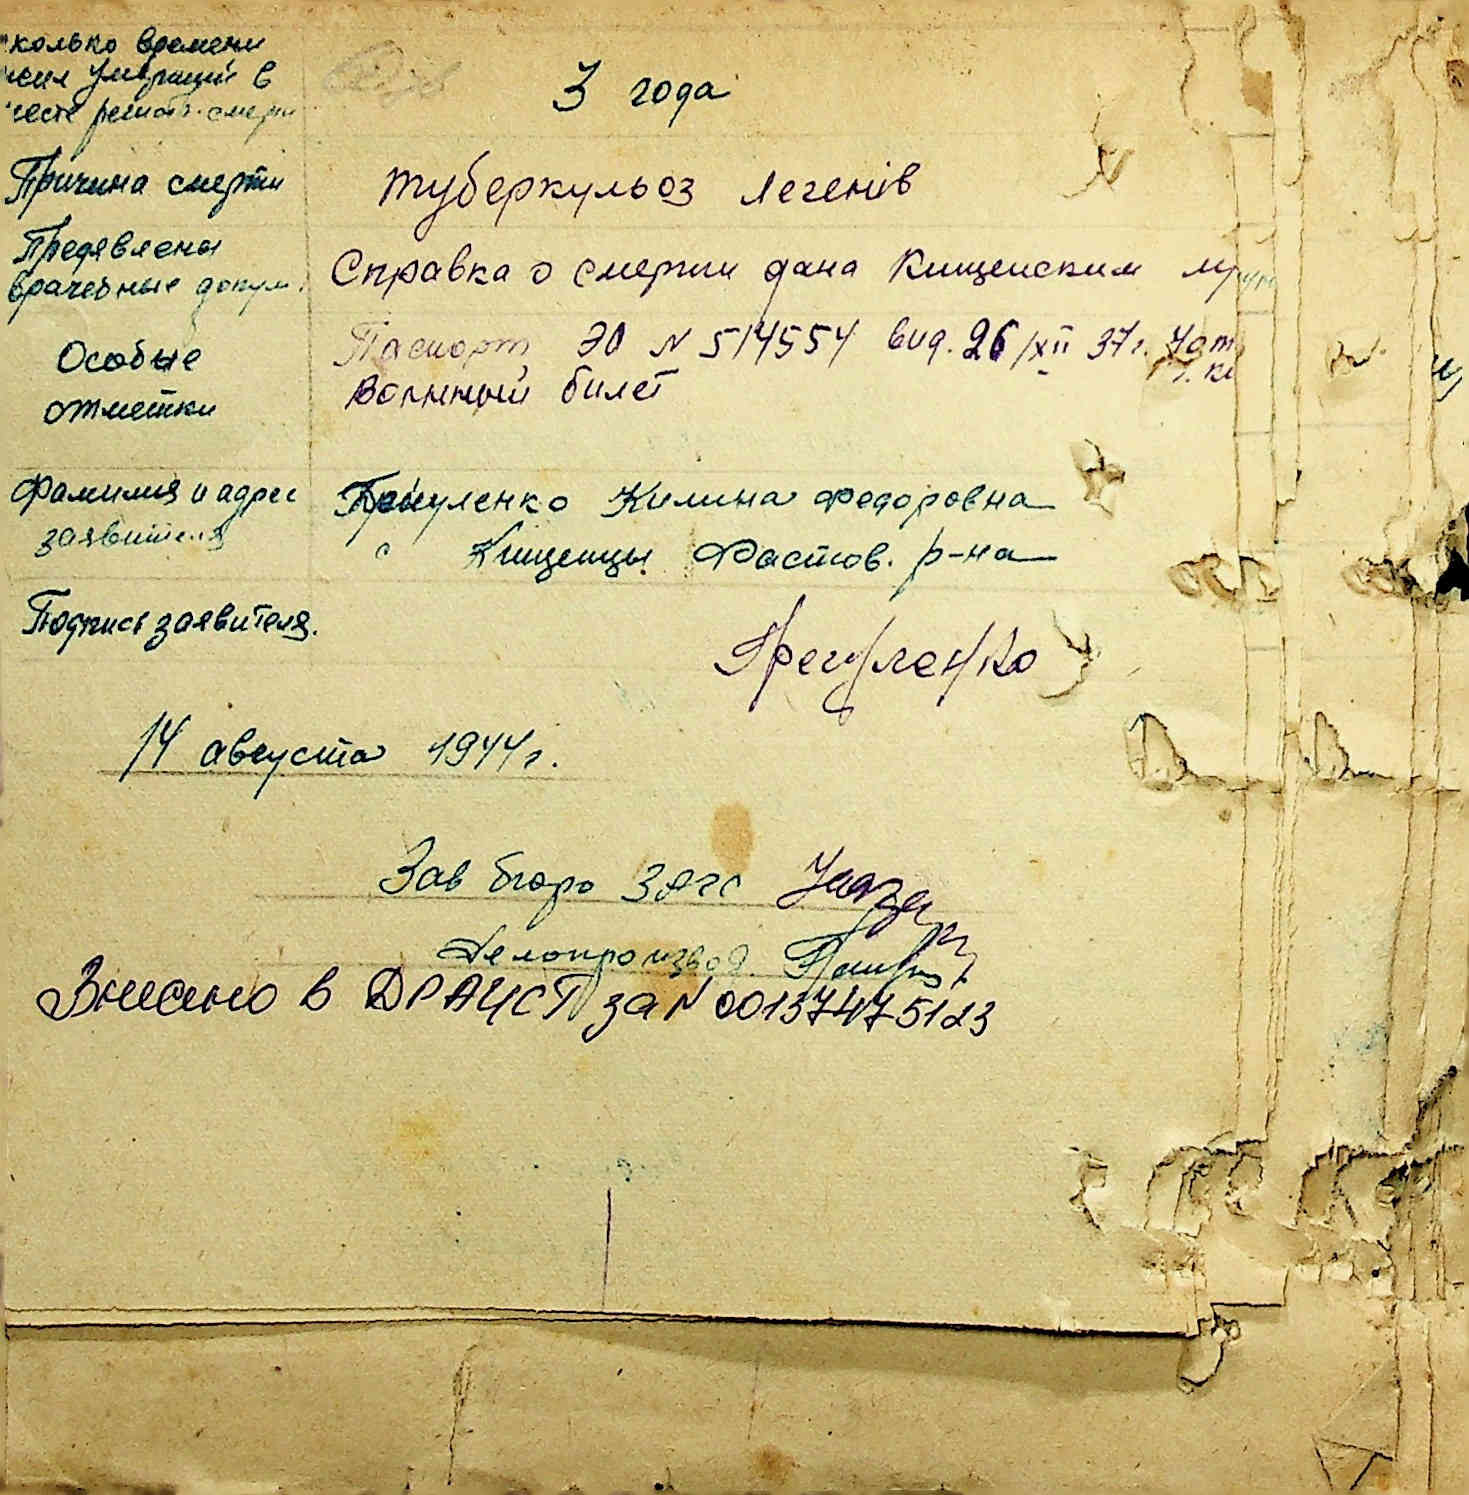 сколько времени
жил умерший в
месте регистр. смерти
3 года
Причина смерти
туберкульоз легенів
Предявлены
врачебные докум.
Справка о смерти дана Кищенским
Особые
отметки
Паспорт ЭО N 514554 вид. 26/XII 37 г.
военный билет
Фамилия и адрес
заявителя
Килина Федоровна
с Кищенцы Фастов. р-на
Подпись заявителя.
Трегуленко
14 августа 1944 г.
Зав бюро ЗАГС
Делопроизвод.
Внесено в ДРАЦСГ за N 00137475123